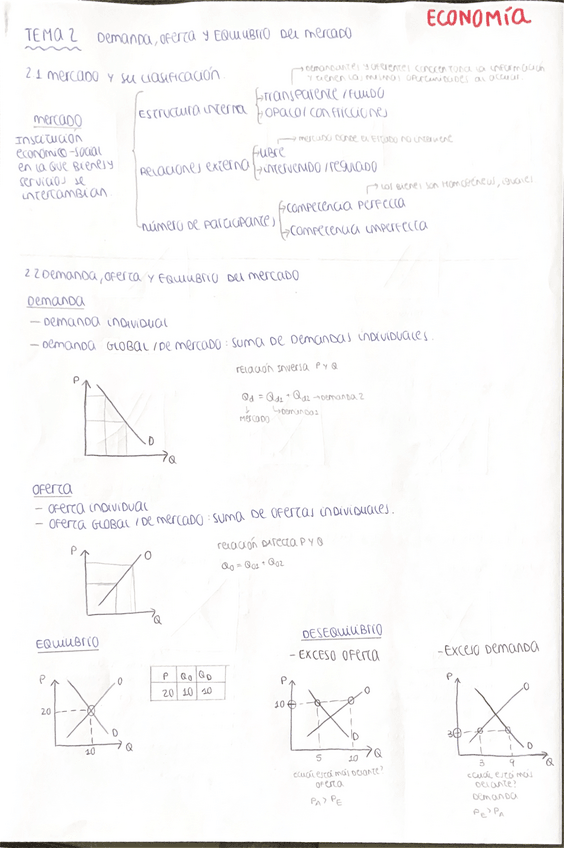 ECONOMÍA
TEMA 2 Demanda, oferta y equilibrio del mercado
2.1 mercado y su clasificación.
demandantes y oferentes conocen toda la información
y tienen las mismas oportunidades al actuar.
mercado
Institución
económico-social
en la que bienes y
servicios se
intercambian
Estructura interna
Transparente / Fluido
Opaca / con fricciones
mercado donde el Estado no interviene
Relaciones externa
Libre
intervenido / regulado
los bienes son homogéneos, iguales
número de participantes
competencia perfecta
competencia imperfecta
2.2 Demanda, oferta y equilibrio del mercado
Demanda
- Demanda individual
- Demanda global / de mercado: suma de demandas individuales.
relación inversa P y Q
P
D
Q
Qd = Qd1 + Qd2 → demanda 2
mercado
Oferta
- Oferta individual
- Oferta global / de mercado: suma de ofertas individuales.
relación directa P y Q
QO = QO1 + QO2
P
O
Q
EQUILIBRIO
P
O
20
D
10
Q
P QO QD
20 10 10
DESEQUILIBRIO
- EXCESO OFERTA
P
O
10
D
5 10 Q
¿cuál está más delante?
PA > PE
- EXCESO DEMANDA
P
O
3
D
3 9 Q
¿cuál está más
delante?
Demanda
PE > PA